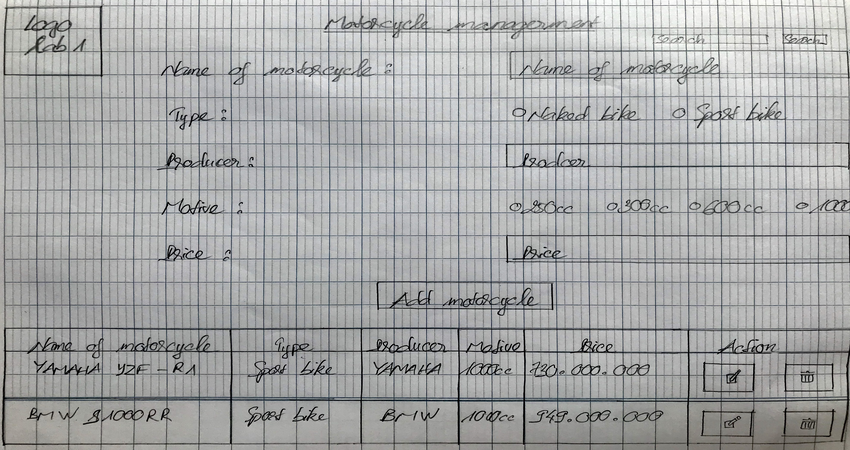 Logo
lab 1
Motorcycle management
Search Search
Name of motorcycle : Name of motorcycle
Type : Naked bike Sport bike
Producer : Producer
Motive : 250cc 300cc 600cc 1000
Price : Price
Add motorcycle
Name of motorcycle Type Producer Motive Price Action
YAMAHA YZF - R1 Sport bike YAMAHA 1000cc 720.000.000
BMW S1000RR Sport bike BMW 1000cc 949.000.000